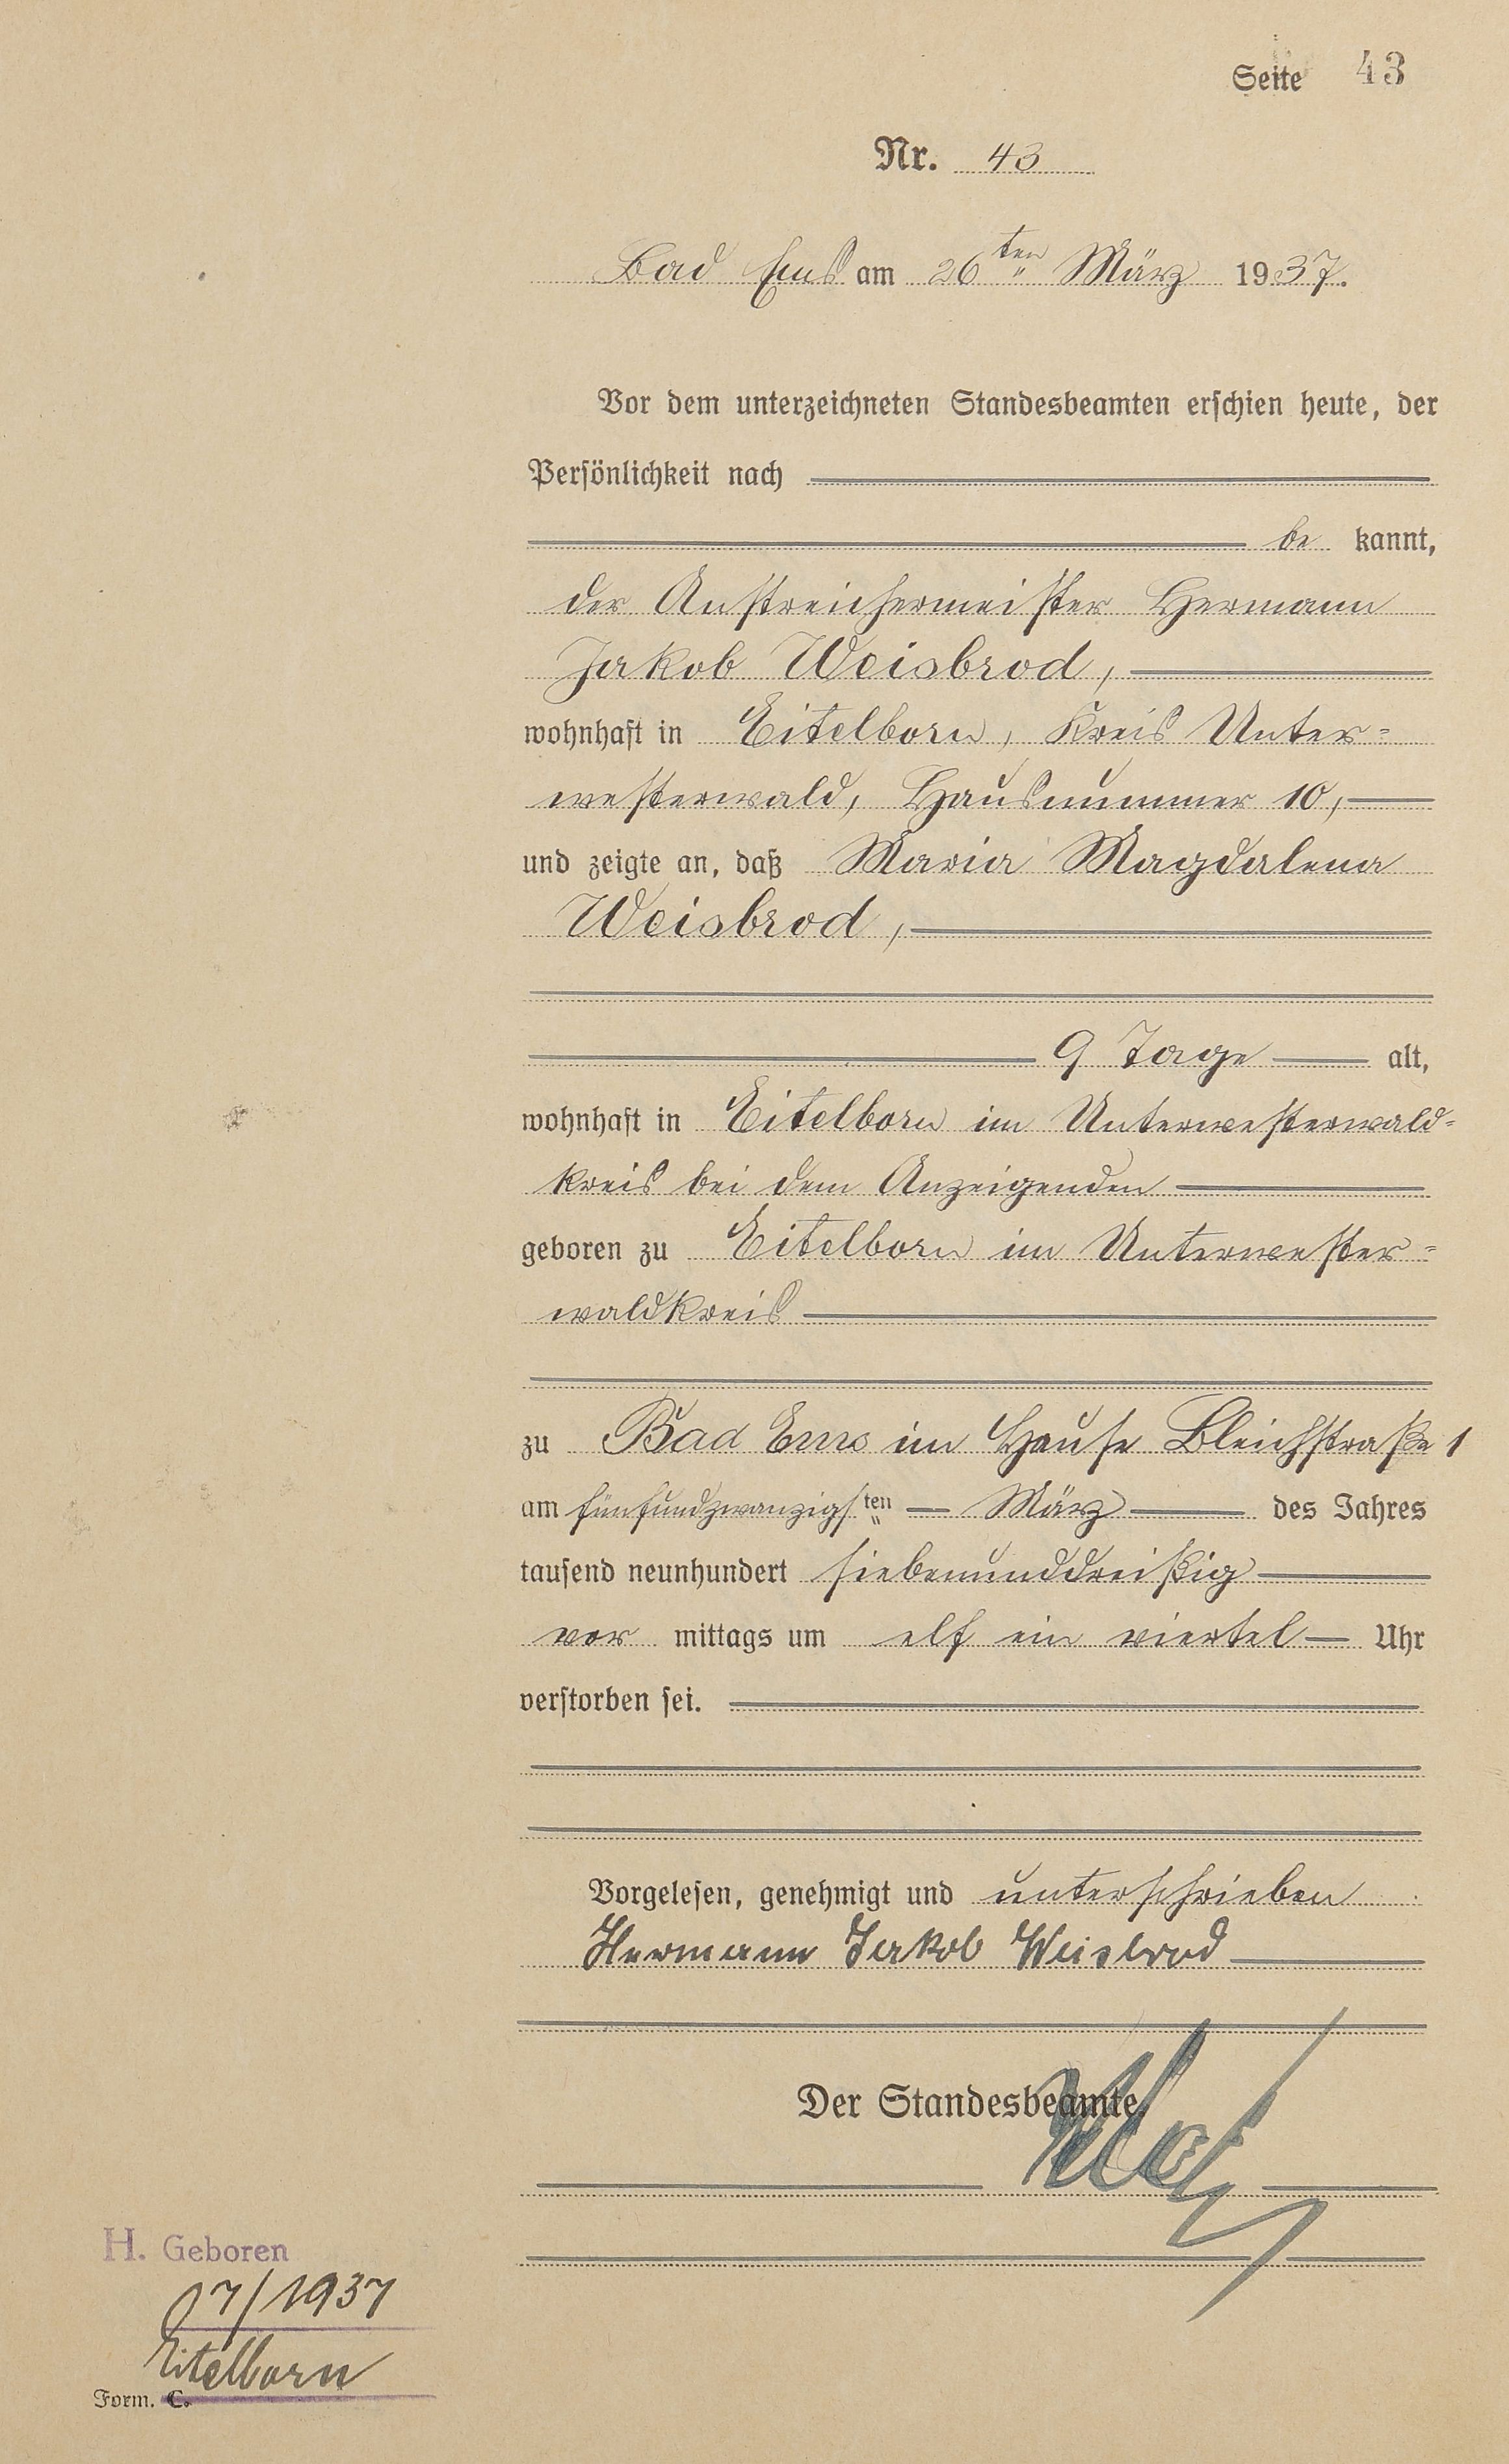 Seite 43
Nr. 43
Bad Ems am 26ten März 1937.
Vor dem unterzeichneten Standesbeamten erschien heute, der
Persönlichkeit nach
be kannt,
der Anstreichermeister Hermann
Jakob Weisbrod,
wohnhaft in Eitelborn, Kreis Unter=
westerwald, Hausnummer 10,
und zeigte an, daß Maria Magdalena
Weisbrod,
9 Tage alt,
wohnhaft in Eitelborn im Unterwesterwald=
kreis bei dem Anzeigenden
geboren zu Eitelborn im Unterwester=
waldkreis
zu Bad Ems im Hause Bleichstraße 1
am fünfundzwanzigsten März des Jahres
tausend neunhundert siebenunddreißig
vor mittags um elf ein viertel Uhr
verstorben sei.
Vorgelesen, genehmigt und unterschrieben
Hermann Jakob Weisbrod
Der Standesbeamte.
H. Geboren
7/1937
Eitelborn
Form. C.